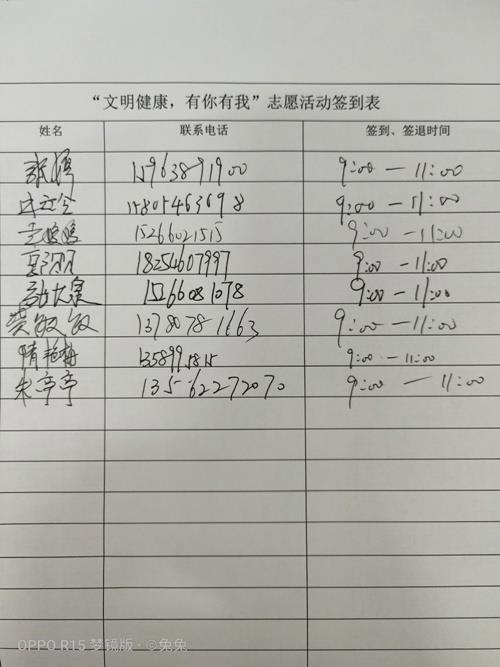 “文明健康，有你有我”志愿活动签到表
姓名 联系电话 签到、签退时间
15963891900 9:00 — 11:00
15805463698 9:00 — 11:00
15266021515 9:00 — 11:00
18254607997 9:00 — 11:00
15266081078 9:00 — 11:00
黄敏敏 13780781663 9:00 — 11:00
9:00 — 11:00
朱亭亭 13562272070 9:00 — 11:00
OPPO R15 梦镜版 · ©兔兔